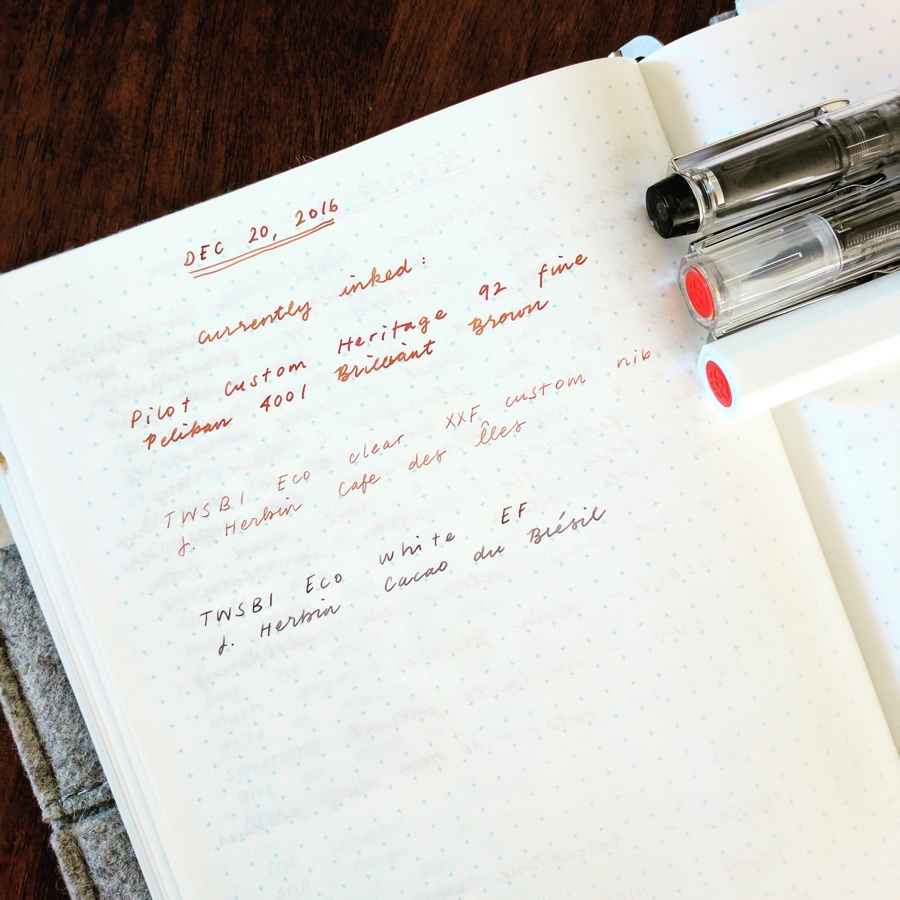 DEC 20, 2016
Currently inked:
Pilot Custom Heritage 92 fine
Pelikan 4001 Brilliant Brown
TWSBI Eco clear XXF custom nib
J. Herbin Cafe des Îles
TWSBI Eco white EF
J. Herbin Cacao du Brésil